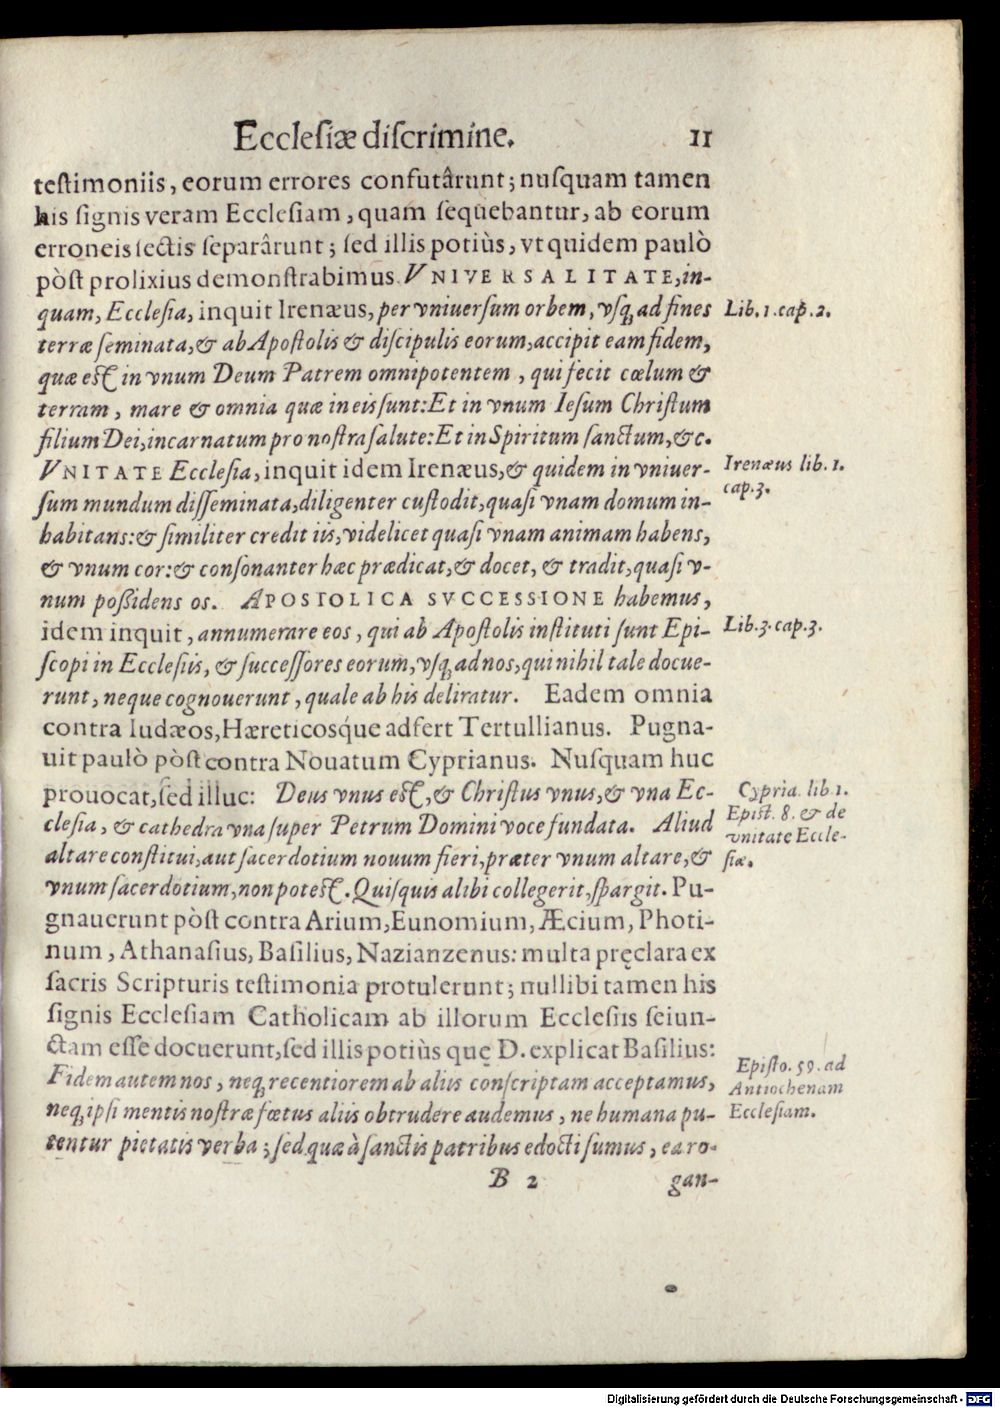 Ecclesiæ discrimine. 11
testimoniis, eorum errores confutârunt; nusquam tamen
his signis veram Ecclesiam, quam sequebantur, ab eorum
erroneis sectis separârunt; sed illis potiùs, vt quidem paulò
pòst prolixius demonstrabimus. VNIVERSALITATE, in-
quam, Ecclesia, inquit Irenæus, per vniuersum orbem, vsq́ ad fines
Lib. 1. cap. 2.
terræ seminata, & ab Apostolis & discipulis eorum, accipit eam fidem,
quæ est in vnum Deum Patrem omnipotentem, qui fecit cœlum &
terram, mare & omnia quæ in eis sunt: Et in vnum Iesum Christum
filium Dei, incarnatum pro nostra salute: Et in Spiritum sanctum, &c.
VNITATE Ecclesia, inquit idem Irenæus, & quidem in vniuer-
Irenæus lib. 1.
cap. 3.
sum mundum disseminata, diligenter custodit, quasi vnam domum in-
habitans: & similiter credit iis, videlicet quasi vnam animam habens,
& vnum cor: & consonanter hæc prædicat, & docet, & tradit, quasi v-
num possidens os. APOSTOLICA SVCCESSIONE habemus,
idem inquit, annumerare eos, qui ab Apostolis instituti sunt Epi-
Lib. 3. cap. 3.
scopi in Ecclesiis, & successores eorum, vsq́ ad nos, qui nihil tale docue-
runt, neque cognouerunt, quale ab his deliratur. Eadem omnia
contra Iudæos, Hæreticosq́ue adfert Tertullianus. Pugna-
uit paulò pòst contra Nouatum Cyprianus. Nusquam huc
prouocat, sed illuc: Deus vnus est, & Christus vnus, & vna Ec-
clesia, & cathedra vna super Petrum Domini voce fundata. Aliud
altare constitui, aut sacerdotium nouum fieri, præter vnum altare, &
vnum sacerdotium, non potest. Quisquis alibi collegerit, spargit. Pu-
Cypria. lib 1.
Epist. 8. & de
vnitate Eccle-
siæ.
gnauerunt pòst contra Arium, Eunomium, Æcium, Photi-
num, Athanasius, Basilius, Nazianzenus: multa pręclara ex
sacris Scripturis testimonia protulerunt; nullibi tamen his
signis Ecclesiam Catholicam ab illorum Ecclesiis seiun-
ctam esse docuerunt, sed illis potiùs quę D. explicat Basilius:
Fidem autem nos, neq́ recentiorem ab aliis conscriptam acceptamus,
Episto. 59. ad
Antiochenam
Ecclesiam.
neq́, ipsi mentis nostræ fœtus aliis obtrudere audemus, ne humana pu-
tentur pietatis verba; sed quæ à sanctis patribus edocti sumus, ea ro-
B 2 gan-
Digitalisierung gefördert durch die Deutsche Forschungsgemeinschaft - DFG